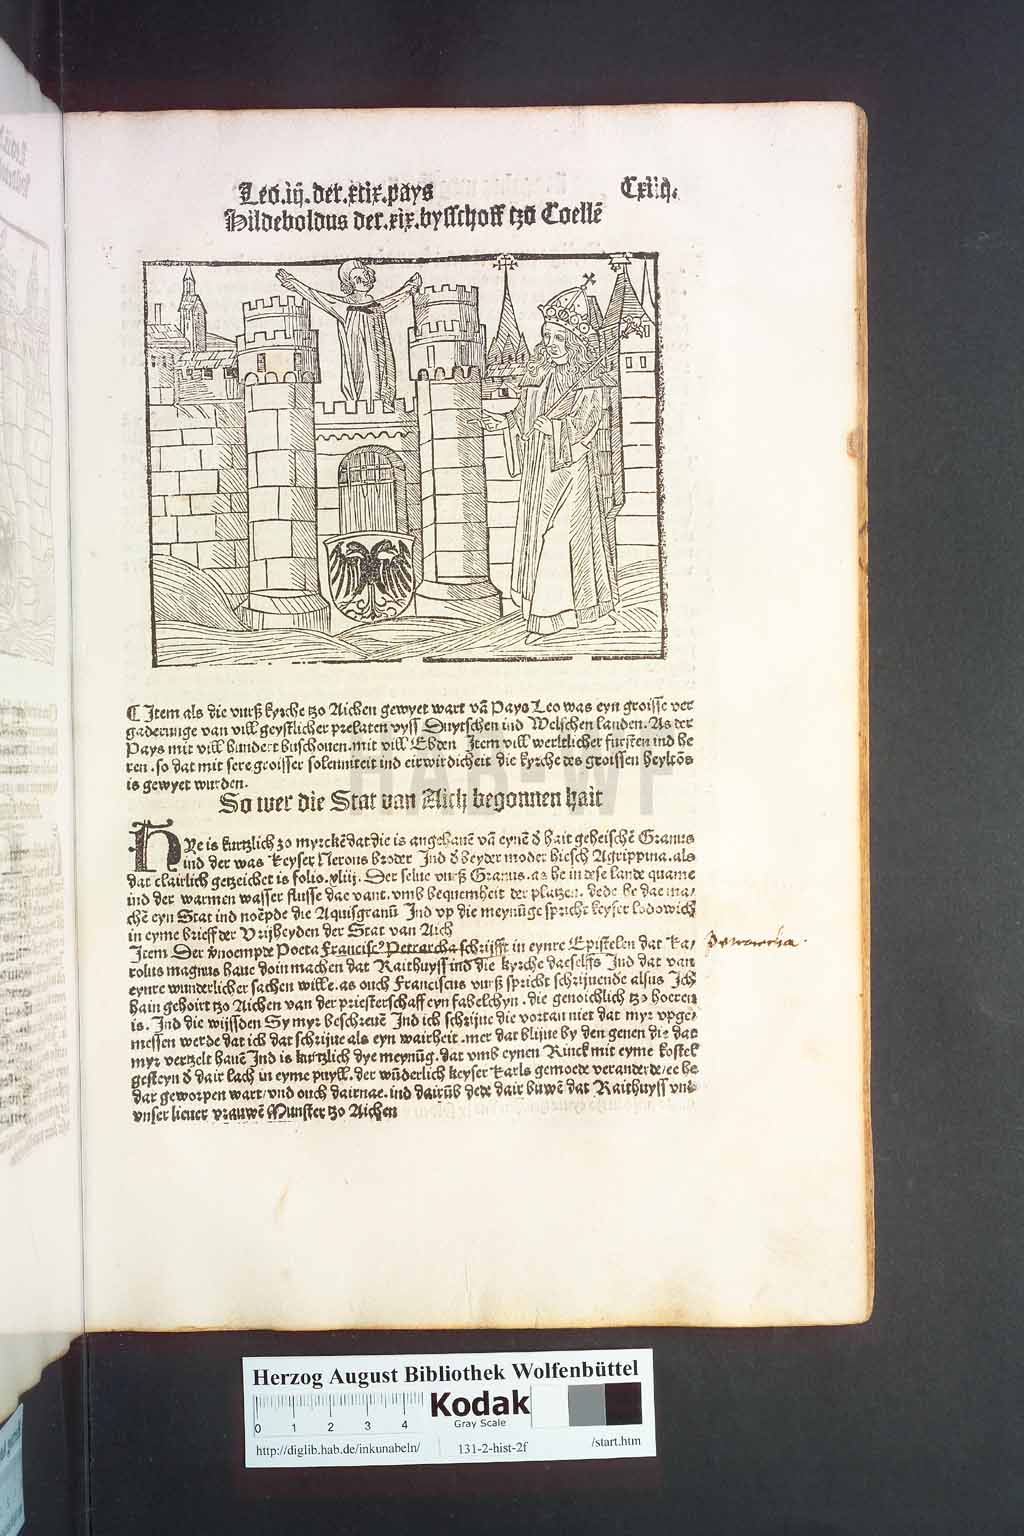 Leo.iij.der.xcix.pays
Cxiiij.
Hildeboldus der.xix.bysschoff tzo Coellē
¶ Item als die vurß kyrche tzo Aichen gewyet wart vā Pays Leo was eyn groisse ver
gaderunge van vill geystlicher prelaten vyss Duytschen ind Welschen landen. As der
Pays mit vill hundert buschouen. mit vill Ebden Item vill werltlicher fursten ind he
ren. so dat mit sere groisser solenniteit ind eirwirdicheit die kyrche des groissen heyltōs
is gewyet wurden.
So wer die Stat van Aich begonnen hait
HYe is kurtzlich zo myrckē dat die is angehauē vā eynē ď hait geheischē Granus
ind der was keyser Nerons broder Ind ď beyder moder hiesch Agrippina. als
dat clairlich getzeichet is folio. xliij. Der selue vurß Granus. as he in dese lande quame
ind der warmen wasser flusse dae vant. vmb bequemheit der platzen. dede he dae ma/
chē eyn Stat ind noēpde die Aquisgranū Ind vp die meynūge spricht keyser lodowich
in eyme brieff der Vrijheyden der Stat van Aich
Item Der vnoempde Poeta Francisc9 Petrarcha schrijfft in eynre Epistelen dat Ka/
rolus magnus haue doin machen dat Raithuyss ind die kyrche daeselffs Ind dat van
eynre wunderlicher sachen wille. as ouch Franciscus vurß spricht schrijuende alsus Ich
hain gehoirt tzo Aichen van der priesterschaff eyn fabelchyn. die genoichlich tzo hoeren
is. Ind die wijssden Sy myr beschreuē Ind ich schrijue die vortan niet dat myr vpge/
messen werde dat ich dat schrijue als eyn wairheit. mer dat blijue by den genen die dat
myr vertzelt hauē Ind is kurtzlich dye meynūg. dat vmb eynen Rinck mit eyme kostel
gesteyn ď dair lach in eyme puyll. der wūderlich keyser Karls gemoede veranderde/ ee he
dar geworpen wart/ vnd ouch dairnae. ind dairūb dede dair buwē dat Raithuyss vnd
vnser lieuer vrauwē Munster tzo Aichen
Petrarcha.
HAB-WF
Herzog August Bibliothek Wolfenbüttel
0 1 2 3 4
Kodak
Gray Scale
http://diglib.hab.de/inkunabeln/ 131-2-hist-2f /start.htm